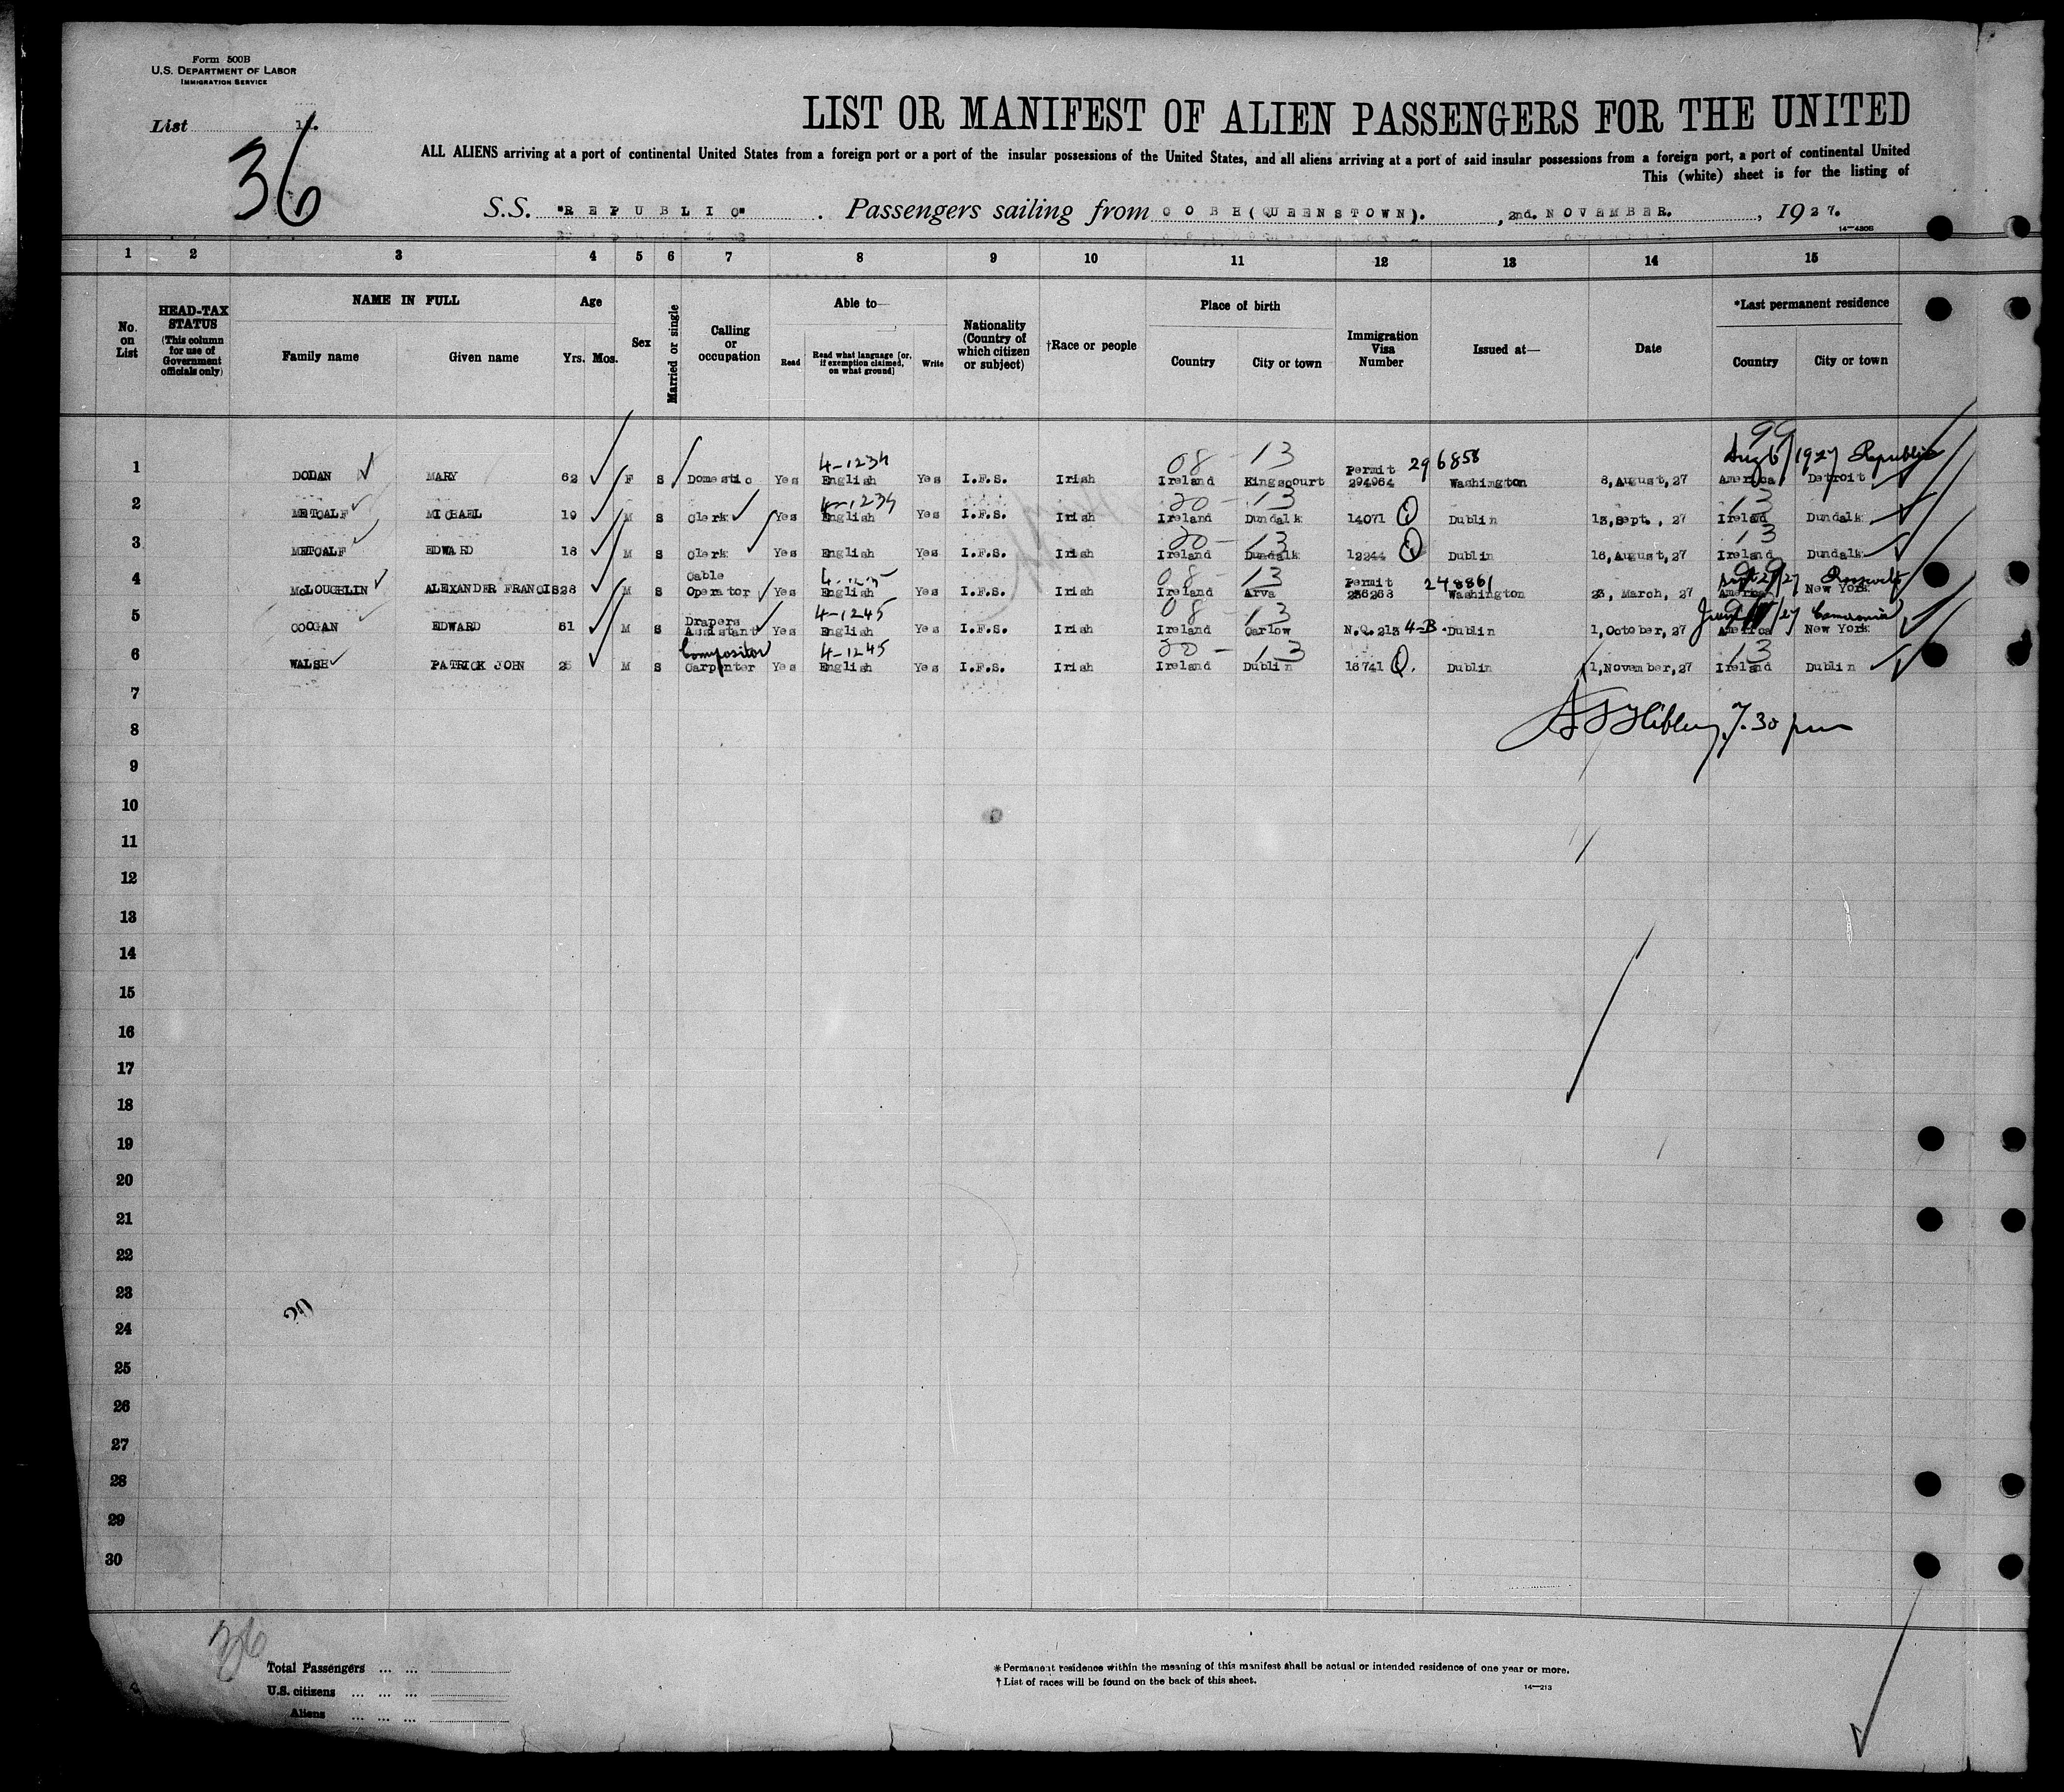 Form 500B
U.S. DEPARTMENT OF LABOR
IMMIGRATION SERVICE
List
36
LIST OR MANIFEST OF ALIEN PASSENGERS FOR THE UNITED
ALL ALIENS arriving at a port of continental United States from a foreign port or a port of the insular possessions of the United States, and all aliens arriving at a port of said insular possessions from a foreign port, a port of continental United
This (white) sheet is for the listing of
S.S. "REPUBLIC". Passengers sailing from COBH(QUEENSTOWN)., 2nd. NOVEMBER., 1927.
14—430B
1 2 3 4 5 6 7 8 9 10 11 12 13 14 15
No. on List
HEAD-TAX STATUS (This column for use of Government officials only)
NAME IN FULL
Family name Given name
Age
Yrs. Mos.
Sex
Married or single
Calling or occupation
Able to—
Read Read what language [or, if exemption claimed, on what ground] Write
Nationality (Country of which citizen or subject)
†Race or people
Place of birth
Country City or town
Immigration Visa Number
Issued at—
Date
*Last permanent residence
Country City or town
4-1234 08 - 13 99
Permit 296858 Aug 6/1927 Republic
1 DOLAN MARY 62 F S Domestic Yes English Yes I.F.S. Irish Ireland Kingscourt 294964 Washington 8,August,27 America Detroit
4-1234 20 - 13 13
2 METCALF MICHAEL 19 M S Clerk Yes English Yes I.F.S. Irish Ireland Dundalk 14071 Q Dublin 13,Sept., 27 Ireland Dundalk
20 - 13 13
3 METCALF EDWARD 18 M S Clerk Yes English Yes I.F.S. Irish Ireland Dundalk 12244 Q Dublin 16,August,27 Ireland Dundalk
Cable 08 - 13 Permit 248861
4 McLOUGHLIN ALEXANDER FRANCIS 28 M S Operator Yes English Yes I.F.S. Irish Ireland Arva 236263 Washington 23, March, 27 America New York
Drapers 4-1245 08 - 13
5 COOGAN EDWARD 31 M S Assistant Yes English Yes I.F.S. Irish Ireland Carlow N.Q.213 4-B Dublin 1,October,27 America New York
Compositor 4-1245 20 - 13 13
6 WALSH PATRICK JOHN 25 M S Carpenter Yes English Yes I.F.S. Irish Ireland Dublin 16741 Q. Dublin 1,November,27 Ireland Dublin
7
7.30 pm
8
9
10
11
12
13
14
15
16
17
18
19
20
21
22
23
20
24
25
26
27
28
29
30
36
Total Passengers ... ...
U.S. citizens ... ... ...
Aliens ... ... ...
*Permanent residence within the meaning of this manifest shall be actual or intended residence of one year or more.
†List of races will be found on the back of this sheet.
14—213